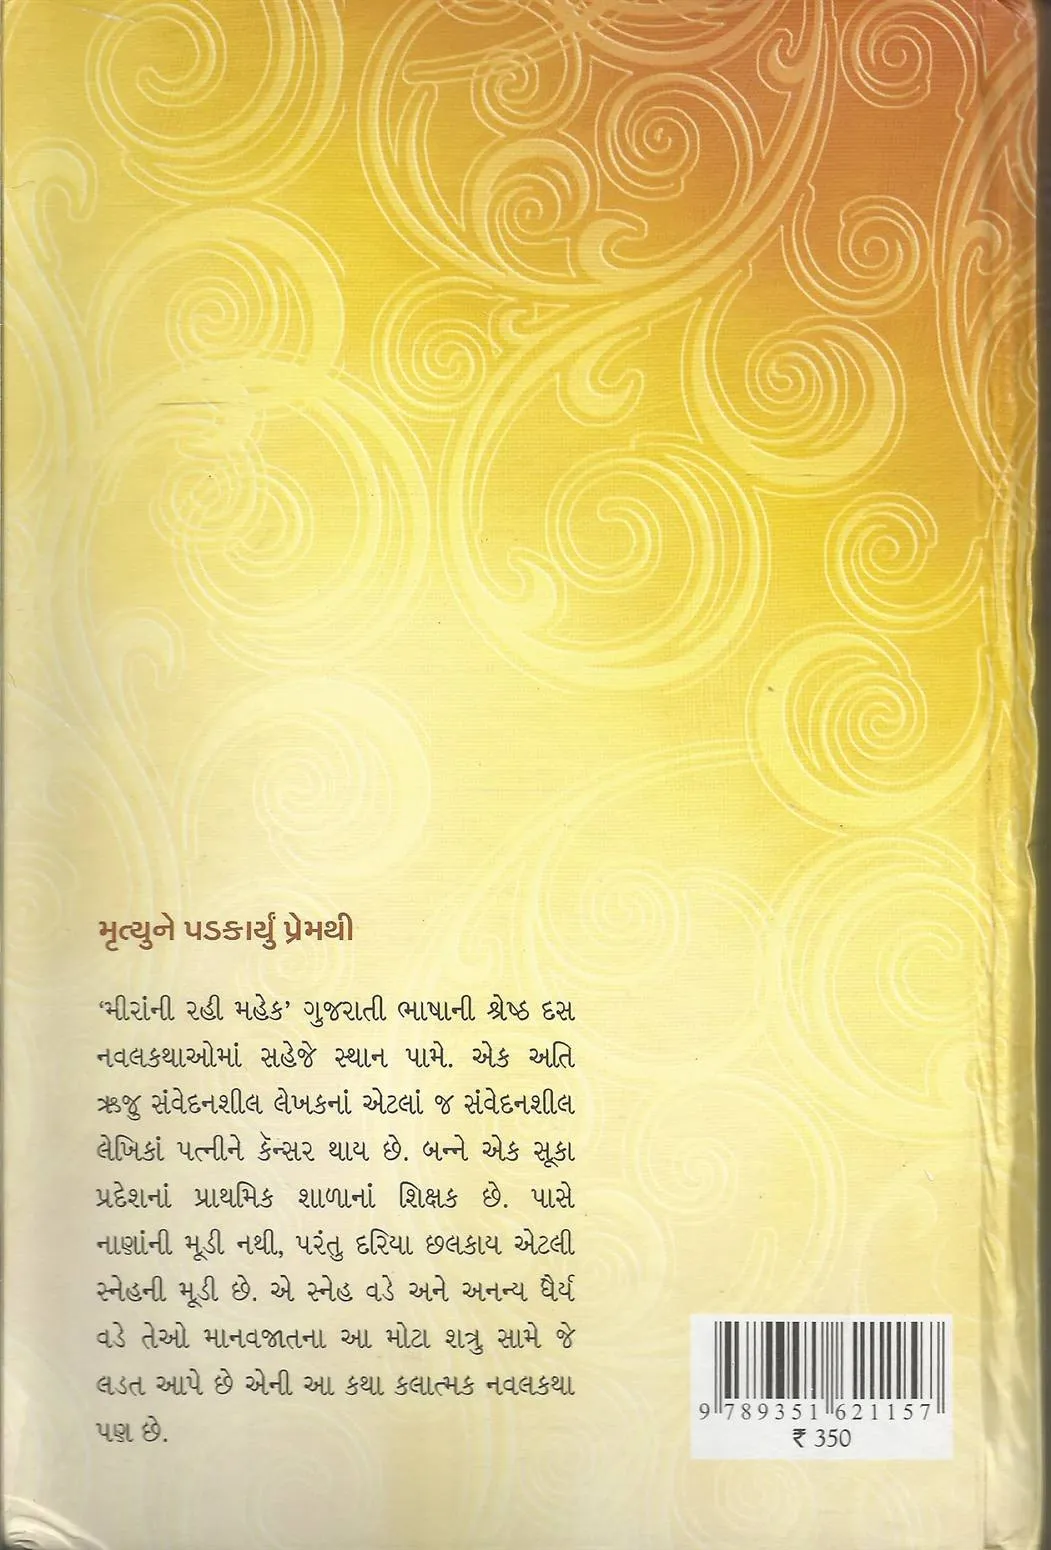 મૃત્યુને પડકાર્યું પ્રેમથી
‘મીરાંની રહી મહેક’ ગુજરાતી ભાષાની શ્રેષ્ઠ દસ
નવલકથાઓમાં સહેજે સ્થાન પામે. એક અતિ
ઋજુ સંવેદનશીલ લેખકનાં એટલાં જ સંવેદનશીલ
લેખિકાં પત્નીને કૅન્સર થાય છે. બન્ને એક સૂકા
પ્રદેશનાં પ્રાથમિક શાળાનાં શિક્ષક છે. પાસે
નાણાંની મૂડી નથી, પરંતુ દરિયા છલકાય એટલી
સ્નેહની મૂડી છે. એ સ્નેહ વડે અને અનન્ય ધૈર્ય
વડે તેઓ માનવજાતના આ મોટા શત્રુ સામે જે
લડત આપે છે એની આ કથા કલાત્મક નવલકથા
પણ છે.
9 789351 621157
₹ 350